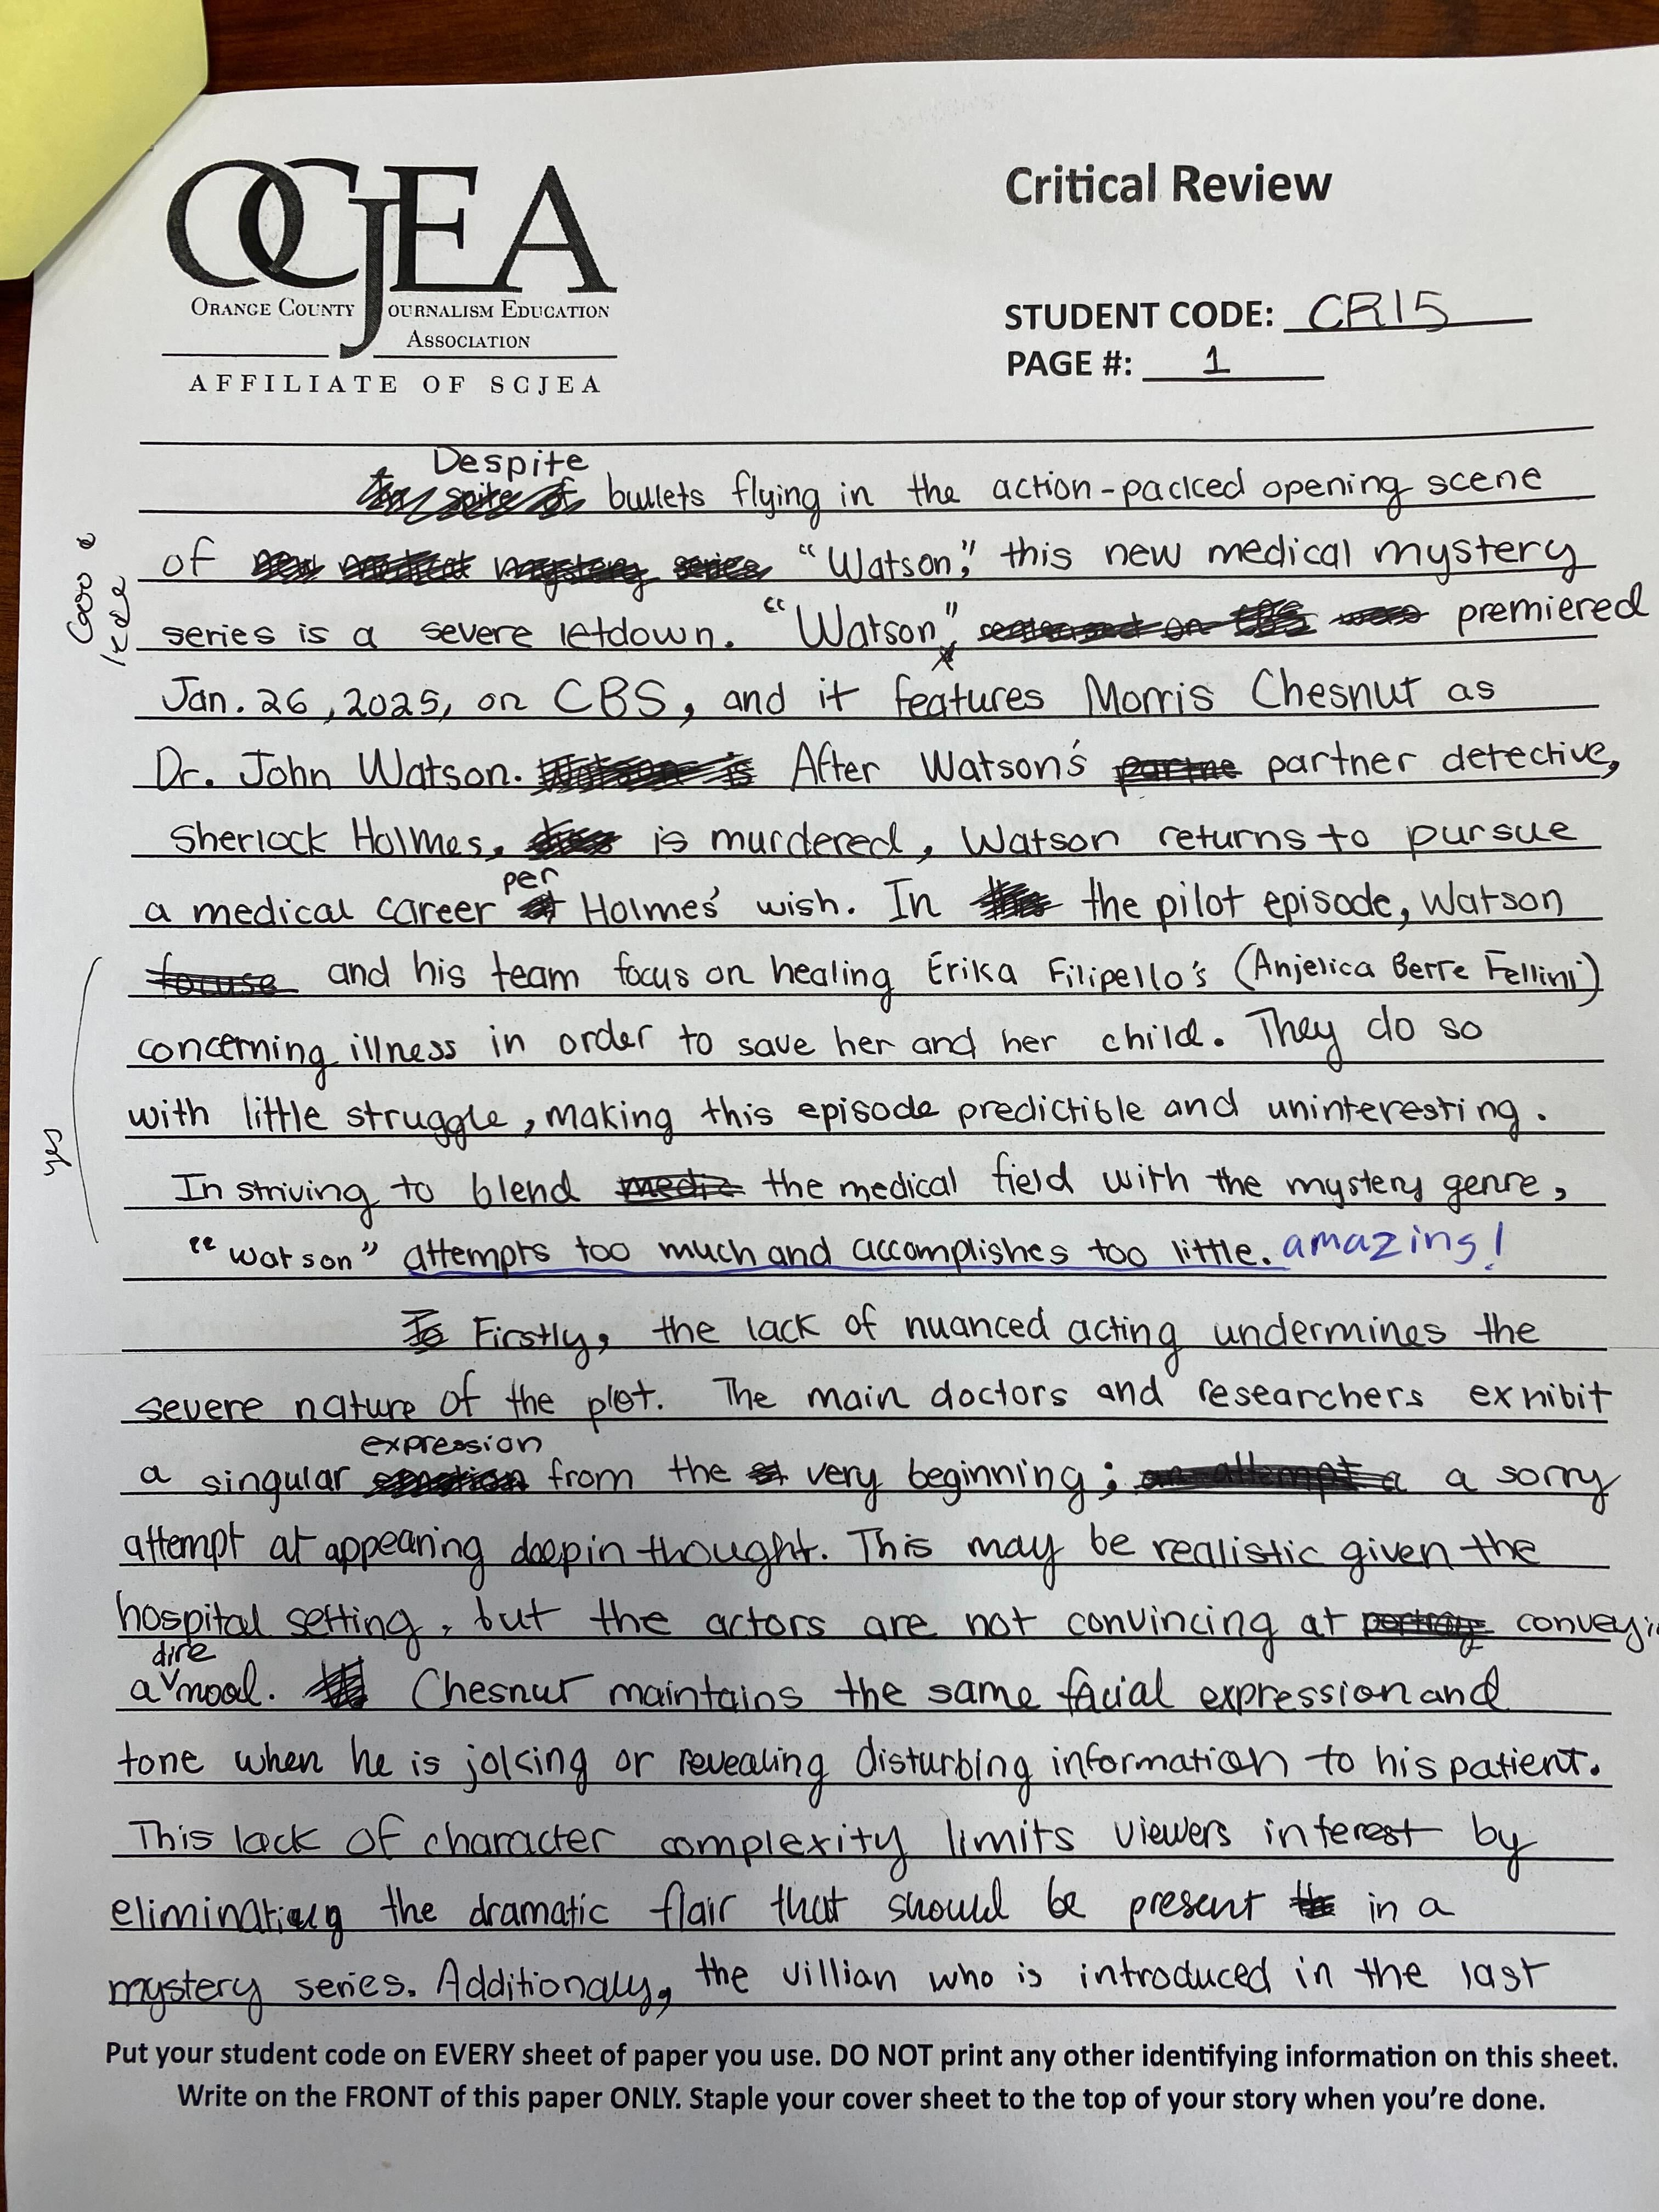 OCJEA
Orange County Journalism Education
Association
AFFILIATE OF SCJEA
Critical Review
STUDENT CODE: CR15
PAGE #: 1
Despite
bullets flying in the action-packed opening scene
of "Watson," this new medical mystery
series is a severe letdown. "Watson" premiered
Jan. 26, 2025, on CBS, and it features Morris Chesnut as
Dr. John Watson. After Watson's partner detective,
Sherlock Holmes, is murdered, Watson returns to pursue
per
a medical career Holmes' wish. In the pilot episode, Watson
and his team focus on healing Erika Filipello's (Anjelica Bette Fellini)
concerning illness in order to save her and her child. They do so
with little struggle, making this episode predictible and uninteresting.
yes
In striving to blend the medical field with the mystery genre,
"Watson" attempts too much and accomplishes too little. amazing!
Firstly, the lack of nuanced acting undermines the
severe nature of the plot. The main doctors and researchers exhibit
expression
a singular from the very beginning; a sorry
attempt at appearing deep in thought. This may be realistic given the
hospital setting, but the actors are not convincing at conveyi
dire
a mood. Chesnut maintains the same facial expression and
tone when he is joking or revealing disturbing information to his patient.
This lack of character complexity limits viewers interest by
eliminating the dramatic flair that should be present in a
mystery series. Additionaly, the villian who is introduced in the last
Put your student code on EVERY sheet of paper you use. DO NOT print any other identifying information on this sheet.
Write on the FRONT of this paper ONLY. Staple your cover sheet to the top of your story when you're done.